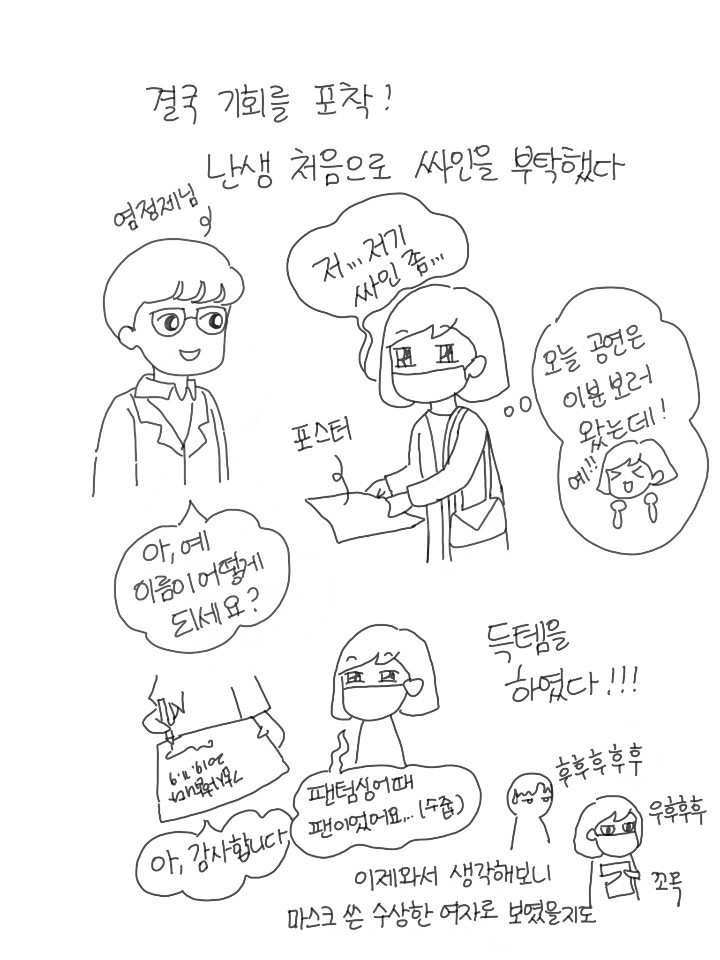 결국 기회를 포착!
난생 처음으로 싸인을 부탁했다
염정제님
저... 저기
싸인 좀...
오늘 공연은
이분보러
왔는데!
예!!
포스터
아, 예
이름이 어떻게
되세요?
득템을
하였다!!!
2019.11.9
감사합니다
팬텀싱어때
팬이었어요... (수줍)
아, 감사합니다
후후후후후
우후후후
꼬옥
이제와서 생각해보니
마스크 쓴 수상한 여자로 보였을지도